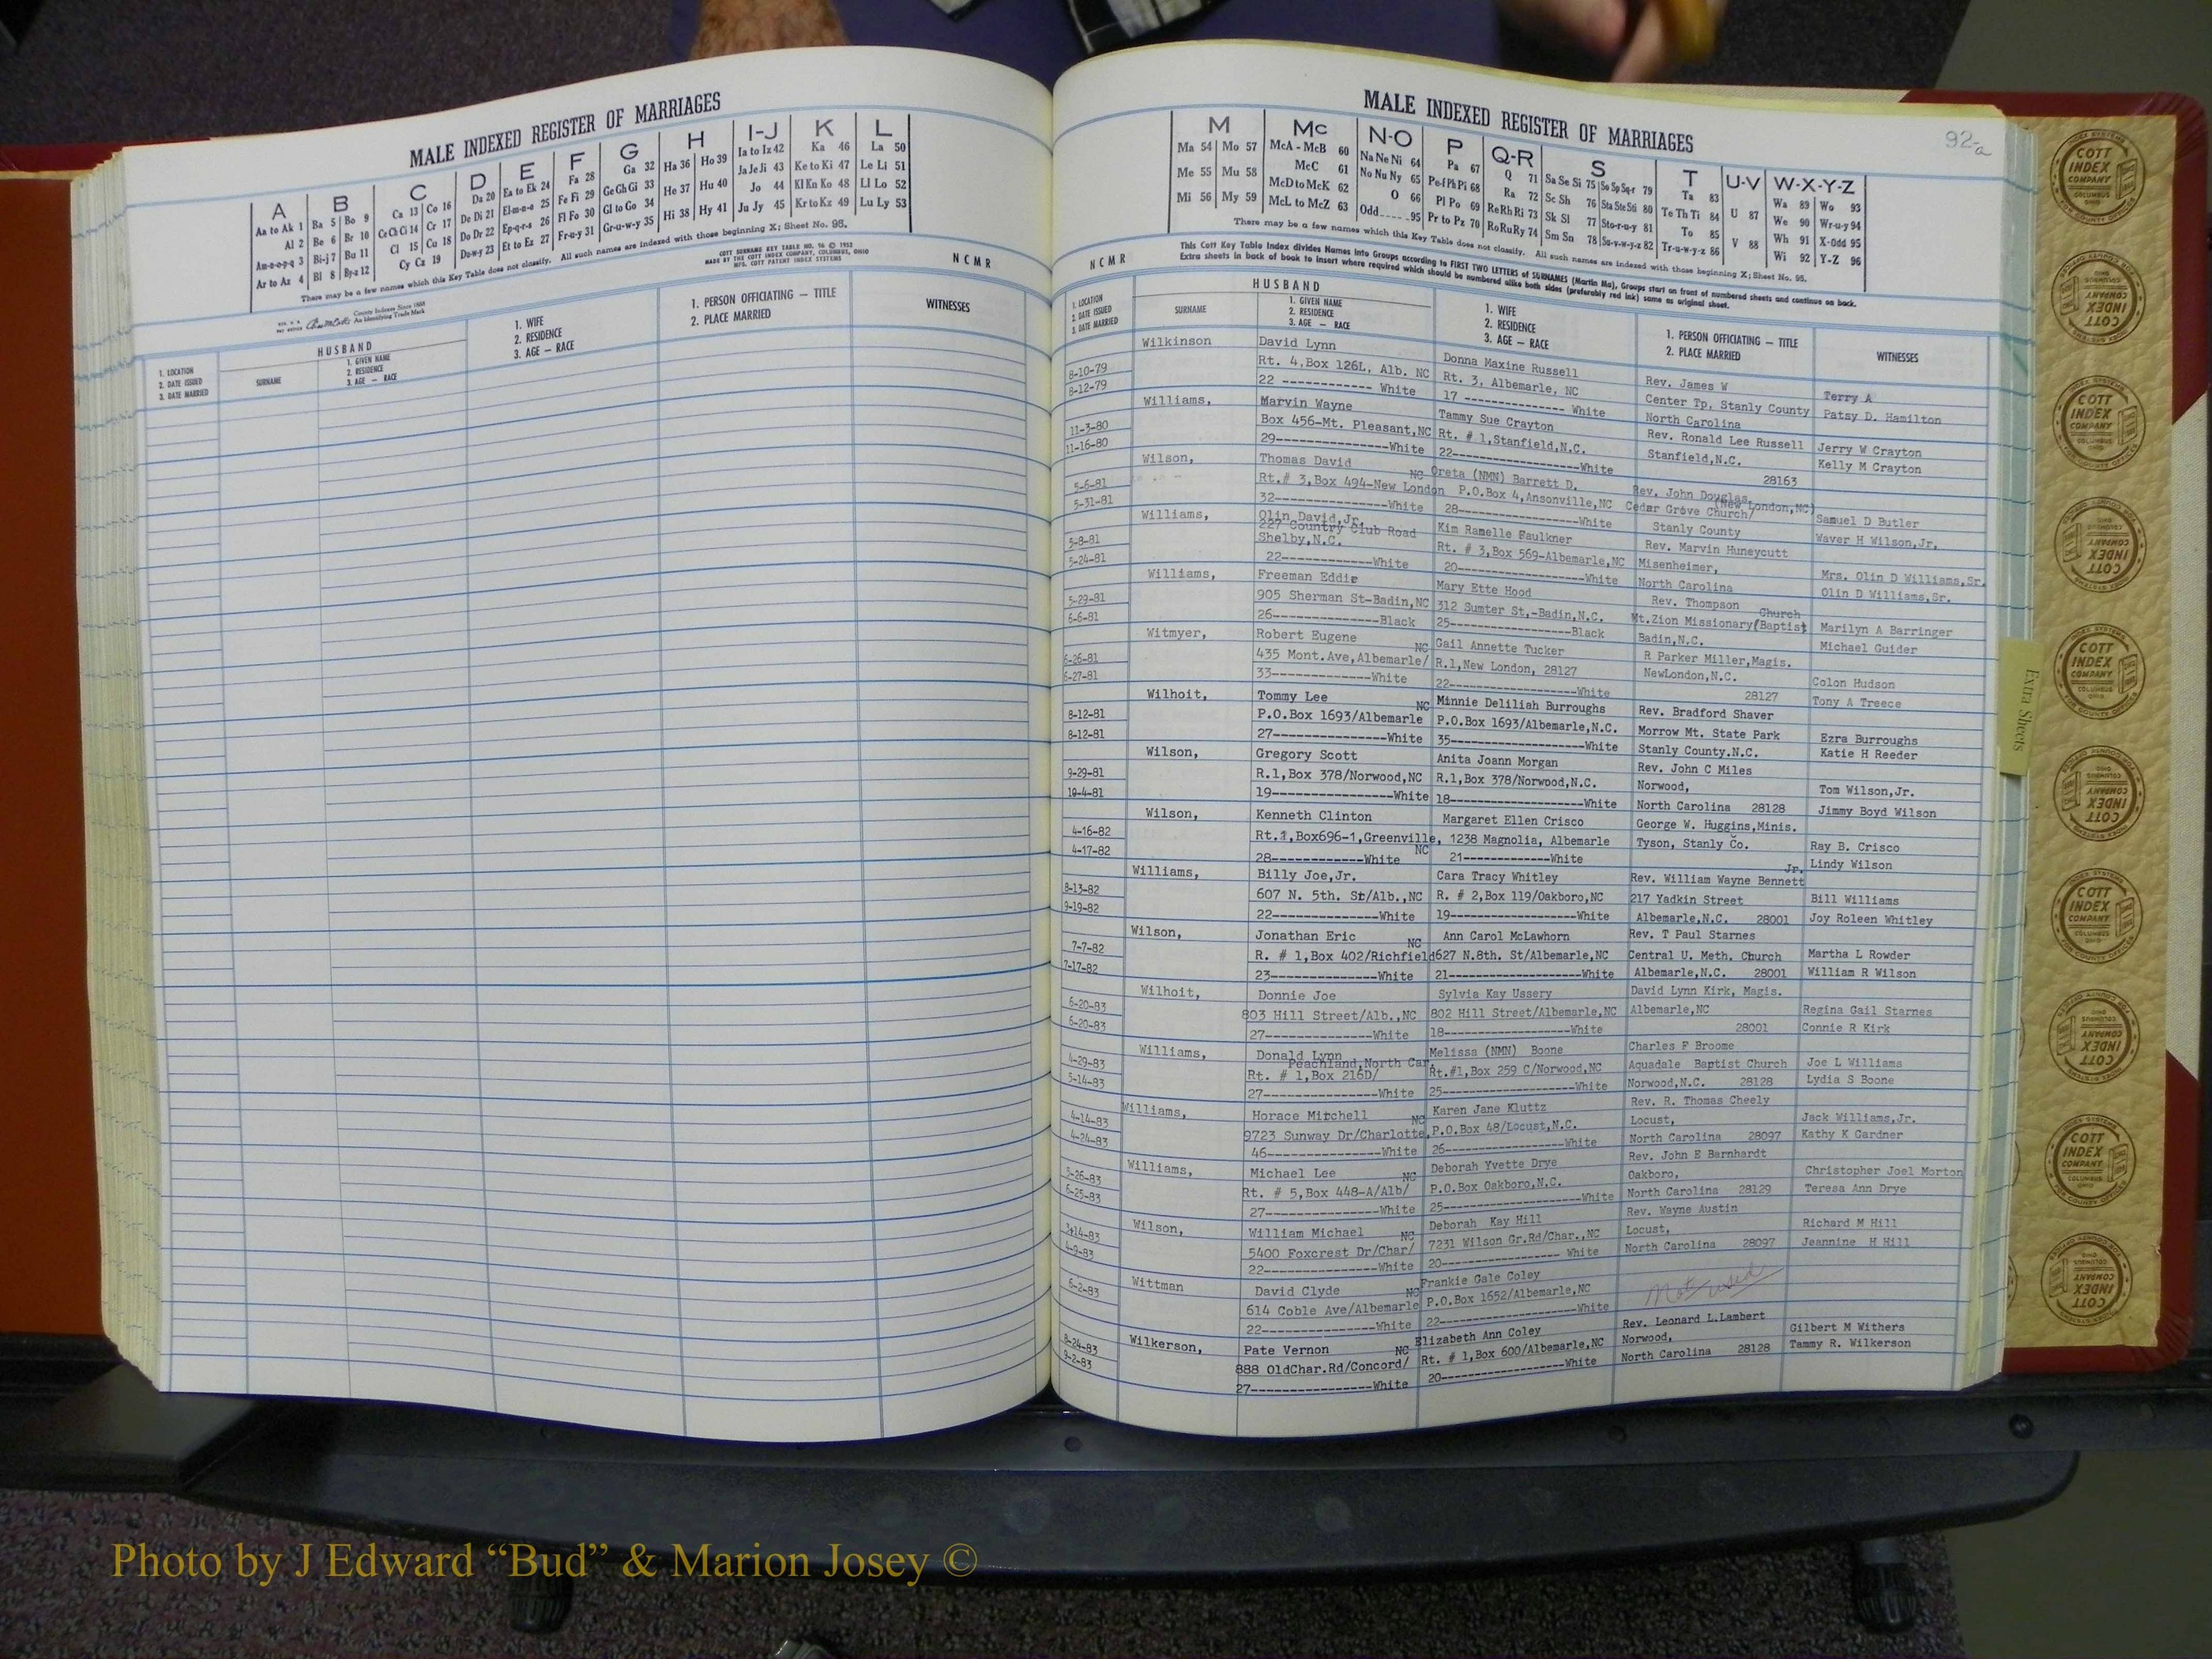 MALE INDEXED REGISTER OF MARRIAGES
A
Aa to Ak 1
Al 2
Am-n-o-p-q 3
Ar to Az 4
B
Ba 5 Bo 9
Be 6 Br 10
Bi-j 7 Bu 11
Bl 8 By-z 12
C
Ca 13 Co 16
Ce Ch Ci 14 Cr 17
Cl 15 Cu 18
Cy Cz 19
D
Da 20
De Di 21
Do Dr 22
Du-w-y 23
E
Ea to Ek 24
El-m-n-o 25
Ep-q-r-s 26
Et to Ez 27
F
Fa 28
Fe Fi 29
Fl Fo 30
Fr-u-y 31
G
Ga 32
Ge Gh Gi 33
Gl to Go 34
Gr-u-w-y 35
H
Ha 36 Ho 39
He 37 Hu 40
Hi 38 Hy 41
I-J
Ia to Iz 42
Ja Je Ji 43
Jo 44
Ju Jy 45
K
Ka 46
Ke to Ki 47
Kl Kn Ko 48
Kr to Kz 49
L
La 50
Le Li 51
Ll Lo 52
Lu Ly 53
There may be a few names which this Key Table does not classify. All such names are indexed with those beginning X; Sheet No. 95.
COTT SURNAME KEY TABLE NO. 96 © 1952
MADE BY THE COTT INDEX COMPANY, COLUMBUS, OHIO
MFG. COTT PATENT INDEX SYSTEMS
County Indexes Since 1888
An Identifying Trade Mark
NCMR
1. LOCATION
2. DATE ISSUED
3. DATE MARRIED
HUSBAND
SURNAME
1. GIVEN NAME
2. RESIDENCE
3. AGE — RACE
1. WIFE
2. RESIDENCE
3. AGE — RACE
1. PERSON OFFICIATING — TITLE
2. PLACE MARRIED
WITNESSES
MALE INDEXED REGISTER OF MARRIAGES
92-a
M
Ma 54 Mo 57
Me 55 Mu 58
Mi 56 My 59
Mc
McA - McB 60
McC 61
McD to McK 62
McL to McZ 63
N-O
Na Ne Ni 64
No Nu Ny 65
O 66
Odd 95
P
Pa 67
Pe-f Ph Pi 68
Pl Po 69
Pr to Pz 70
Q-R
Q 71
Ra 72
Re Rh Ri 73
Ro Ru Ry 74
S
Sa Se Si 75 So Sp Sq-r 79
Sc Sh 76 Sta Ste Sti 80
Sk Sl 77 Sto-r-u-y 81
Sm Sn 78 Su-v-w-y-z 82
T
Ta 83
Te Th Ti 84
To 85
Tr-u-w-y-z 86
U-V
U 87
V 88
W-X-Y-Z
Wa 89 Wo 93
We 90 Wr-u-y 94
Wh 91 X-Odd 95
Wi 92 Y-Z 96
There may be a few names which this Key Table does not classify. All such names are indexed with those beginning X; Sheet No. 95.
This Cott Key Table Index divides Names into Groups according to FIRST TWO LETTERS of SURNAMES (Martin Ma), Groups start on front of numbered sheets and continue on back.
Extra sheets in back of book to insert where required which should be numbered alike both sides (preferably red ink) same as original sheet.
NCMR
1. LOCATION
2. DATE ISSUED
3. DATE MARRIED
HUSBAND
SURNAME
1. GIVEN NAME
2. RESIDENCE
3. AGE — RACE
1. WIFE
2. RESIDENCE
3. AGE — RACE
1. PERSON OFFICIATING — TITLE
2. PLACE MARRIED
WITNESSES
Wilkinson David Lynn Donna Maxine Russell Rev. James W Terry A
8-10-79 Rt. 4,Box 126L, Alb. NC Rt. 3, Albemarle, NC Center Tp, Stanly County Patsy D. Hamilton
8-12-79 22 ------------ White 17 -------------- White North Carolina
Williams, Marvin Wayne Tammy Sue Crayton Rev. Ronald Lee Russell Jerry W Crayton
11-3-80 Box 456-Mt. Pleasant,NC Rt. # 1,Stanfield,N.C. Stanfield,N.C. Kelly M Crayton
11-16-80 29---------------White 22------------------White 28163
Wilson, Thomas David NC Oreta (NMN) Barrett D. Rev. John Douglas,
5-6-81 Rt.# 3,Box 494-New London P.O.Box 4,Ansonville,NC Cedar Grove Church/ (New London,NC) Samuel D Butler
5-31-81 32---------------White 28------------------White Stanly County Waver H Wilson,Jr.
Williams, Olin David,Jr. Kim Ranelle Faulkner Rev. Marvin Huneycutt
227 Country Club Road
5-8-81 Shelby,N.C. Rt. # 3,Box 569-Albemarle,NC Misenheimer, Mrs. Olin D Williams,Sr.
5-24-81 22---------------White 20------------------White North Carolina Olin D Williams,Sr.
Williams, Freeman Eddie Mary Ette Hood Rev. Thompson
5-29-81 905 Sherman St-Badin,NC 312 Sumter St,-Badin,N.C. Mt.Zion Missionary(Baptist Church Marilyn A Barringer
6-6-81 26---------------Black 25------------------Black Badin,N.C. Michael Guider
Witmyer, Robert Eugene NC Gail Annette Tucker R Parker Miller,Magis.
6-26-81 435 Mont.Ave,Albemarle/ R.1,New London, 28127 NewLondon,N.C. Colon Hudson
6-27-81 33---------------White 22------------------White 28127 Tony A Treece
Wilhoit, Tommy Lee NC Minnie Deliliah Burroughs Rev. Bradford Shaver
8-12-81 P.O.Box 1693/Albemarle P.O.Box 1693/Albemarle,N.C. Morrow Mt. State Park Ezra Burroughs
8-12-81 27---------------White 35------------------White Stanly County.N.C. Katie H Reeder
Wilson, Gregory Scott Anita Joann Morgan Rev. John C Miles
9-29-81 R.1,Box 378/Norwood,NC R.1,Box 378/Norwood,N.C. Norwood, Tom Wilson,Jr.
10-4-81 19---------------White 18------------------White North Carolina 28128 Jimmy Boyd Wilson
Wilson, Kenneth Clinton Margaret Ellen Crisco George W. Huggins,Minis.
4-16-82 Rt.1,Box696-1,Greenville, NC 1238 Magnolia, Albemarle Tyson, Stanly Co. Ray B. Crisco
4-17-82 28------------White 21------------White Lindy Wilson
Williams, Billy Joe,Jr. Cara Tracy Whitley Rev. William Wayne Bennett Jr.
8-13-82 607 N. 5th. St/Alb.,NC R. # 2,Box 119/Oakboro,NC 217 Yadkin Street Bill Williams
9-19-82 22---------------White 19------------------White Albemarle,N.C. 28001 Joy Roleen Whitley
Wilson, Jonathan Eric NC Ann Carol McLawhorn Rev. T Paul Starnes
7-7-82 R. # 1,Box 402/Richfield 627 N.8th. St/Albemarle,NC Central U. Meth. Church Martha L Rowder
7-17-82 23---------------White 21------------------White Albemarle,N.C. 28001 William R Wilson
Wilhoit, Donnie Joe Sylvia Kay Ussery David Lynn Kirk, Magis.
6-20-83 803 Hill Street/Alb.,NC 802 Hill Street/Albemarle,NC Albemarle,NC Regina Gail Starnes
6-20-83 27---------------White 18------------------White 28001 Connie R Kirk
Williams, Donald Lynn Melissa (NMN) Boone Charles F Broome
Peachland,North Car.
4-29-83 Rt. # 1,Box 216D/ Rt.#1,Box 259 C/Norwood,NC Aquadale Baptist Church Joe L Williams
5-14-83 27---------------White 25------------------White Norwood,N.C. 28128 Lydia S Boone
Williams, Horace Mitchell NC Karen Jane Kluttz Rev. R. Thomas Cheely
4-14-83 9723 Sunway Dr/Charlotte, P.O.Box 48/Locust,N.C. Locust, Jack Williams,Jr.
4-24-83 46---------------White 26------------------White North Carolina 28097 Kathy K Gardner
Williams, Michael Lee NC Deborah Yvette Drye Rev. John E Barnhardt
5-26-83 Rt. # 5,Box 448-A/Alb/ P.O.Box Oakboro,N.C. Oakboro, Christopher Joel Morton
6-25-83 27---------------White 25------------------White North Carolina 28129 Teresa Ann Drye
Wilson, William Michael NC Deborah Kay Hill Rev. Wayne Austin
3-14-83 5400 Foxcrest Dr/Char/ 7231 Wilson Gr.Rd/Char.,NC Locust, Richard M Hill
4-9-83 22---------------White 20------------- White North Carolina 28097 Jeannine H Hill
Wittman David Clyde NC Frankie Gale Coley Not used
6-2-83 614 Coble Ave/Albemarle P.O.Box 1652/Albemarle,NC
22---------------White 22------------------White
Wilkerson, Pate Vernon NC Elizabeth Ann Coley Rev. Leonard L.Lambert Gilbert M Withers
8-24-83 888 OldChar.Rd/Concord/ Rt. # 1,Box 600/Albemarle,NC Norwood, Tammy R. Wilkerson
9-2-83 27---------------White 20------------------White North Carolina 28128
Extra Sheets
COTT INDEX COMPANY
COLUMBUS OHIO
INDEX SYSTEMS
FOR COUNTY OFFICES
Photo by J Edward “Bud” & Marion Josey ©